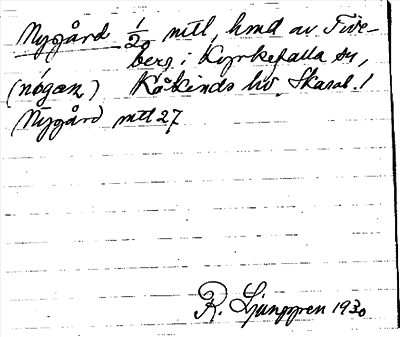 Nygård 1/20 mtl, hmd av Five-
berg i Kyrkefalla sn,
(nógaṉ) Kåkinds hd. Skarab. l
Nygård mtl 27
R. Ljunggren 1930